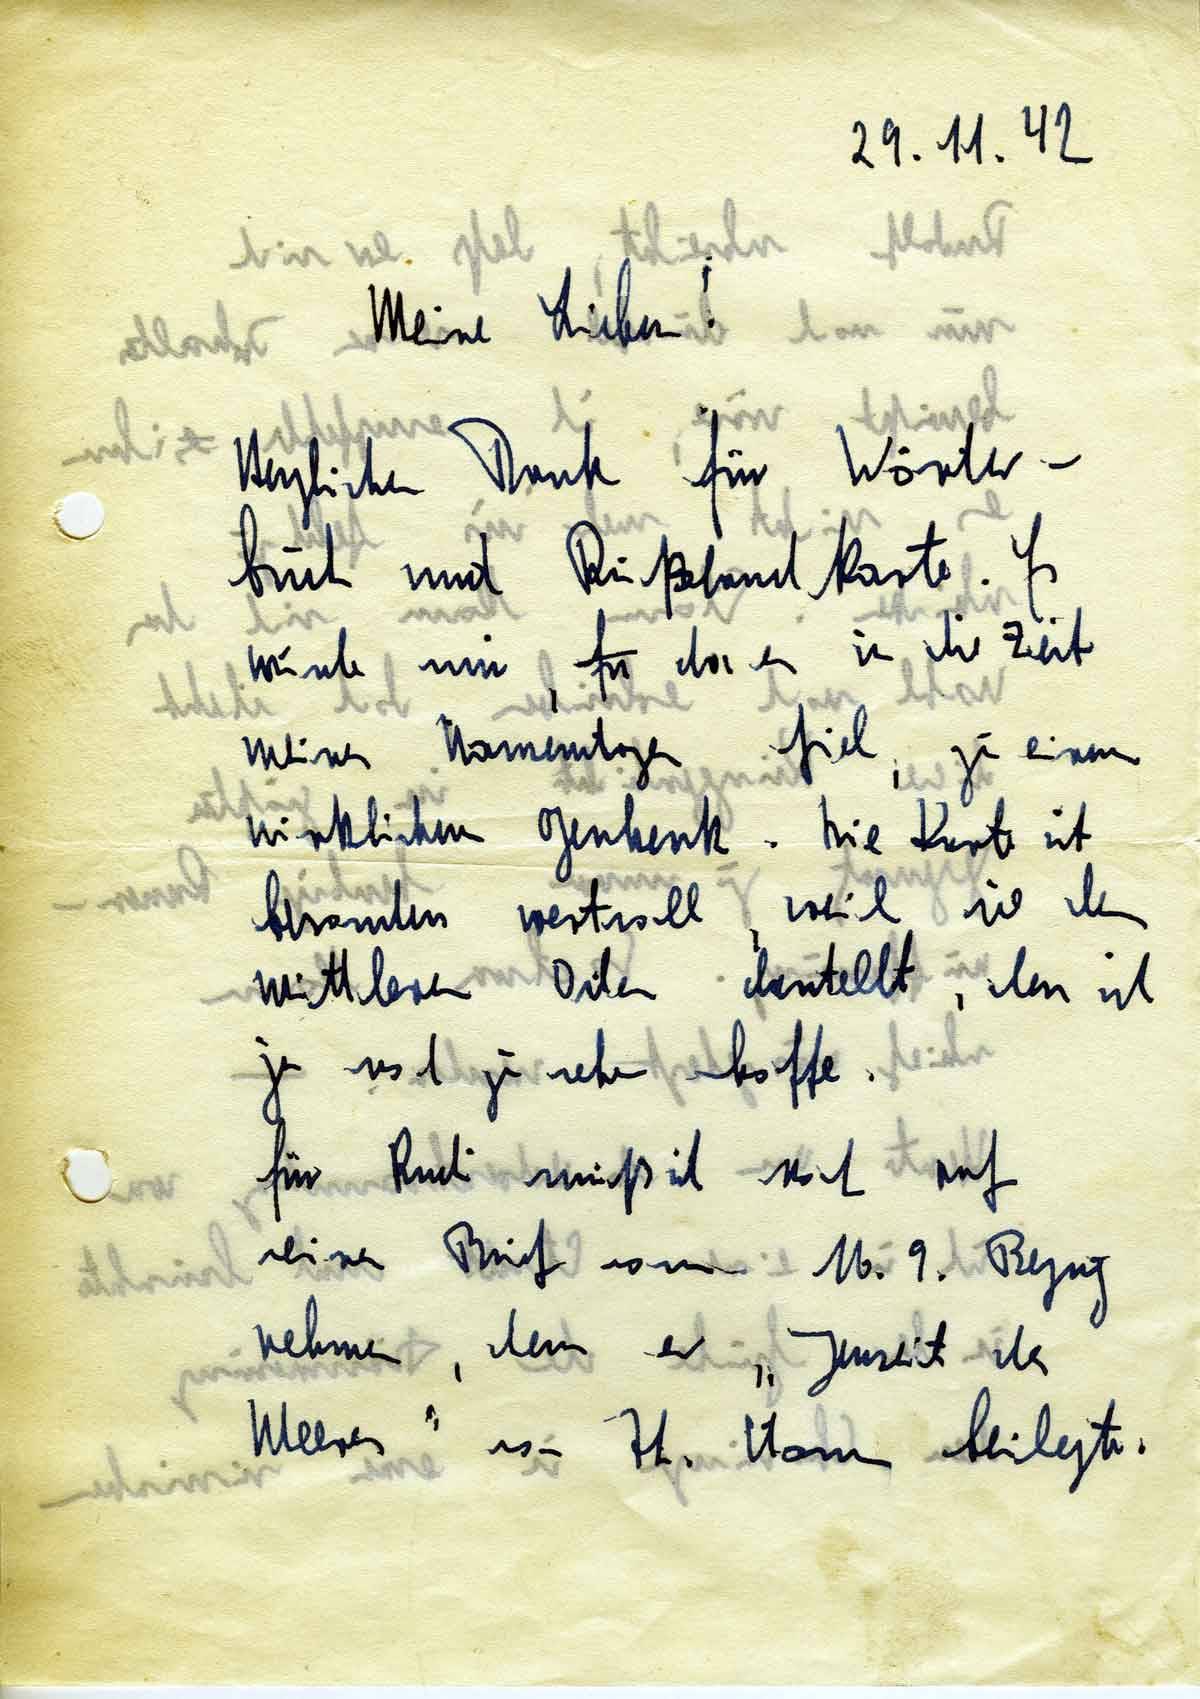 29.11.42
Meine Lieben!
Herzlichen Dank für Wörter-
buch und Rußlandkarte. Es
wurde mir, da es in die Zeit
meines Namenstages fiel, zu einem
wirklichen Geschenk. Die Karte ist
besonders wertvoll, weil sie den
mittleren Osten darstellt, den ich
ja noch zu sehen hoffe.
Für Rudi muß ich noch auf
seinen Brief vom 16.9. Bezug
nehmen, dem er „Jenseits des
Meeres" von Th. beilegte.